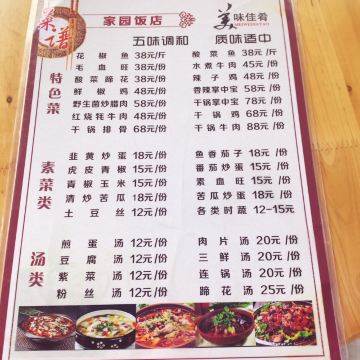 菜谱
家园饭店
美味佳肴
MEIWEIJIAYAO
五味调和 质味适中
特色菜
花椒鱼 38元/斤 酸菜鱼 38元/斤
毛血旺 38元/份 水煮牛肉 45元/份
酸菜蹄花 38元/份 辣子鸡 45元/份
鲜椒鸡 48元/份 香辣掌中宝 58元/份
野生菌炒腊肉 58元/份 干锅掌中宝 58元/份
红烧牦牛肉 48元/份 干锅鸡 68元/份
干锅排骨 68元/份 干锅牛肉 88元/份
素菜类
韭黄炒蛋 18元/份 鱼香茄子 18元/份
虎皮青椒 15元/份 番茄炒蛋 15元/份
青椒玉米 15元/份 素血旺 15元/份
清炒苦瓜 15元/份 苦瓜炒蛋 18元/份
土豆丝 12元/份 各类时蔬 12-15元
汤类
煎蛋汤 12元/份 肉片汤 20元/份
豆腐汤 12元/份 三鲜汤 20元/份
紫菜汤 12元/份 连锅汤 20元/份
粉丝汤 12元/份 蹄花汤 25元/份